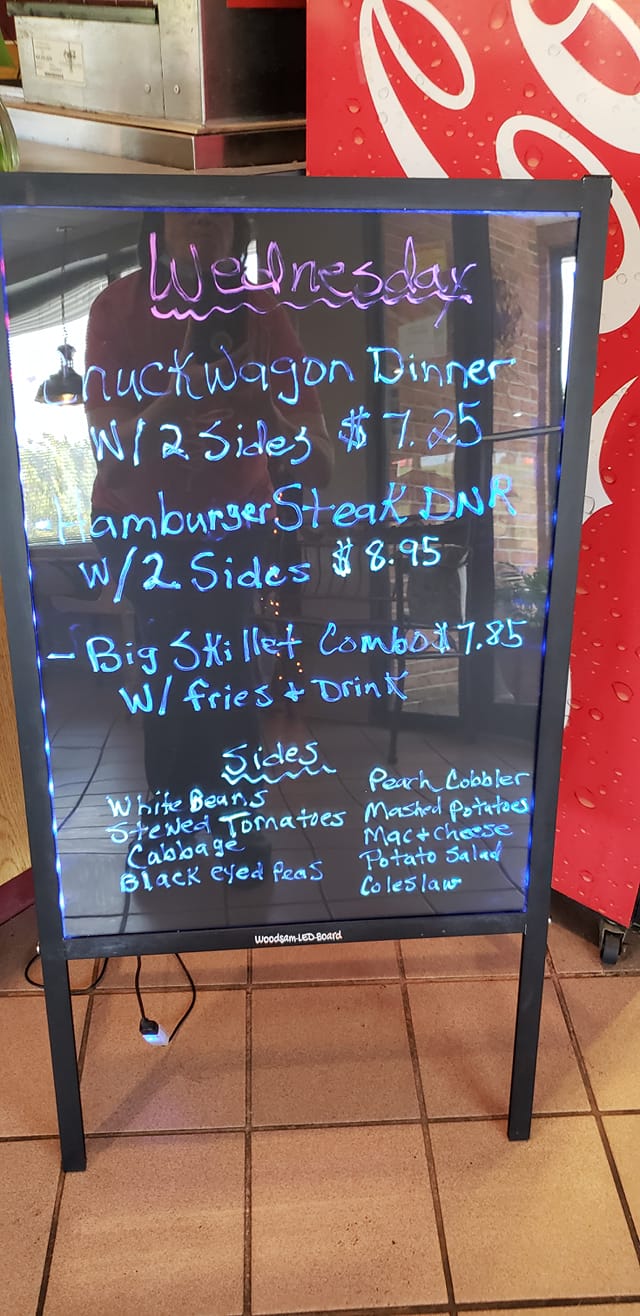 Wednesday
Chuckwagon Dinner
W/ 2 Sides $ 7.25
Hamburger Steak DNR
W/ 2 Sides $ 8.95
- Big Skillet Combo $7.85
W/ fries + Drink
Sides
White Beans
Stewed Tomatoes
Cabbage
Black eyed Peas
Peach Cobbler
Mashed Potatoes
Mac + cheese
Potato Salad
Coleslaw
Woodsam-LED-Board